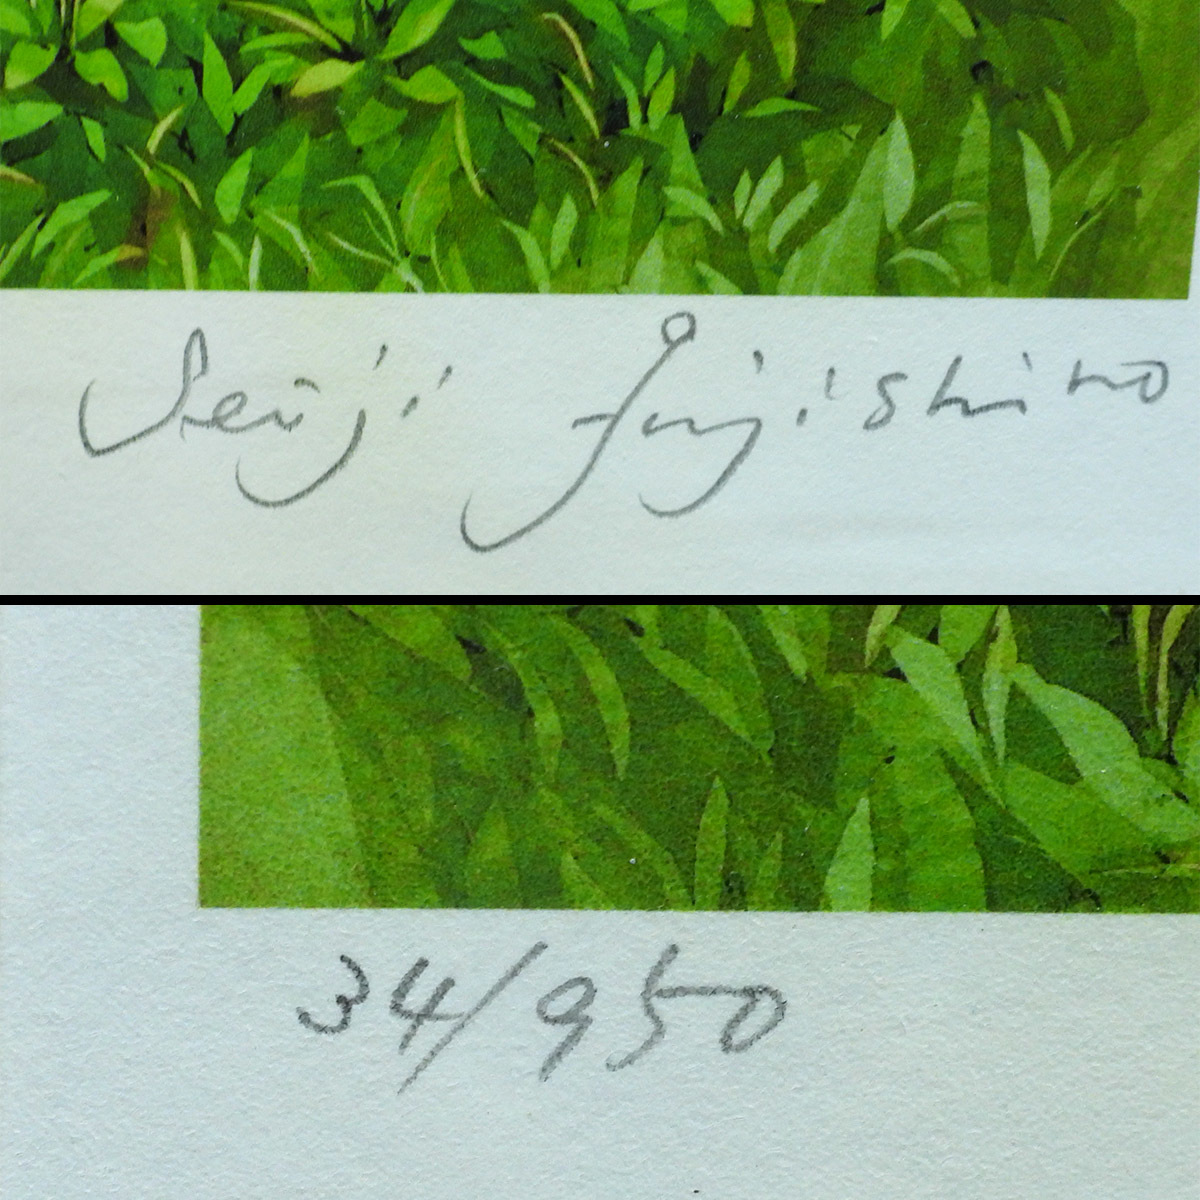 Seiji Fujishiro
34/950